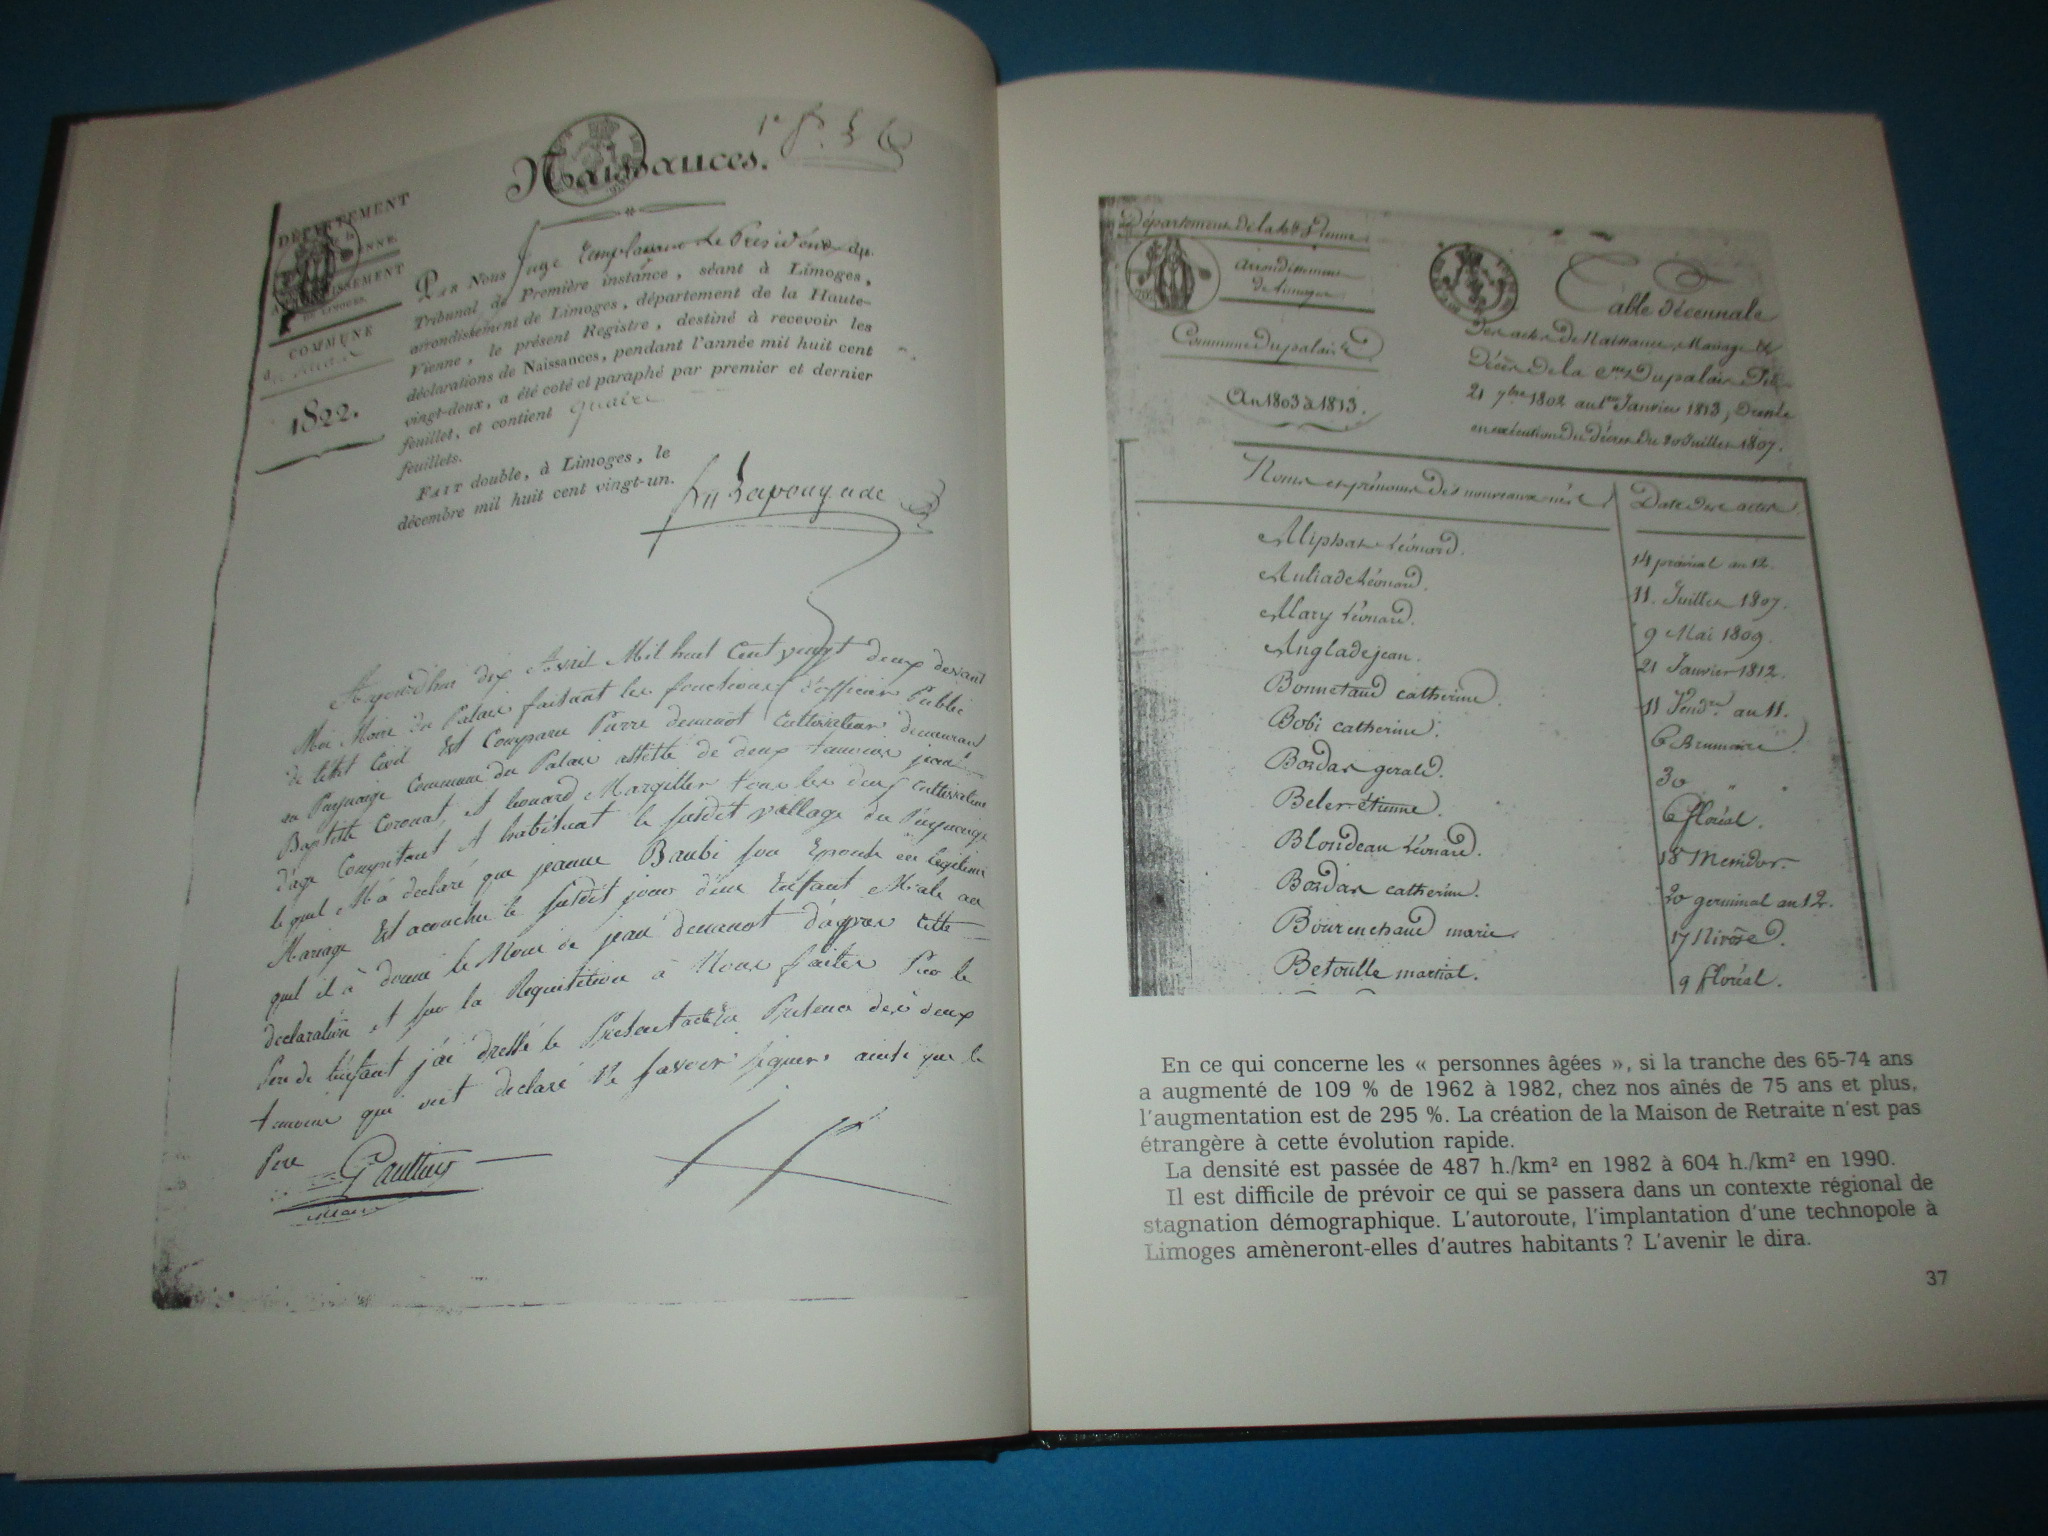 Naissances.
DÉPARTEMENT
ARRONDISSEMENT
DE LIMOGES.
COMMUNE
1822.
PAR NOUS Juge remplaçant Le Président du
Tribunal de Première instance, séant à Limoges,
arrondissement de Limoges, département de la Haute-
Vienne, le présent Registre, destiné à recevoir les
déclarations de Naissances, pendant l'année mil huit cent
vingt-deux, a été coté et paraphé par premier et dernier
feuillet, et contient quatre
feuillets.
FAIT double, à Limoges, le
décembre mil huit cent vingt-un.
Lapouyade
dix Avril Mil huit Cent vingt deux devant
Moi Maire du Palais faisant les fonctions d'officier Public
de letat Civil Est Comparu Pierre demenot Cultivateur demeurant
au Puymaige Commune du Palais assisté de deux temoins jean
Baptiste Coronat, et leonard Margillier tous les deux Cultivateur
d'age Competant et habituat le susdit village du Puymaige
lequel M'a declaré que jeanne Baubi son Epouse en legitime
Mariage Est acouchée le susdit jour d'un Enfant Male au
quel il à donné le Nom de jean demenot d'apres cette
declaration et sur la Requisition à Nous faites Par le
Pere de l'enfant j'ai dressé le Present acte En Presence des deux
temoins qui ont declaré Ne savoir signer ainsi que le
Pere Gaultier
Maire
Département de la hte Vienne
Arrondissement
de Limoges
Commune du palais
An 1803 à 1813.
Table décennale
Des actes de Naissance, Mariage &
Décès de la Cne du palais
21 7bre 1802 au 1er Janvier 1813, Dressée
en exécution du décret du 20 Juillet 1807.
Noms et prénoms des nouveaux nés Date des actes
Aliphat Léonard. 14 prairial an 12.
Auliade Léonard. 11. Juillet 1807.
Alary Léonard. 9 Mai 1809.
Anglade jean. 21 Janvier 1812.
Bonnetaud catherine. 11 Vendre an 11.
Bobi catherine. 6 Brumaire
Bordas gerald. 30 " "
Beler étienne. 6 floréal.
Blondeau Léonard. 18 Messidor
Bordas catherine. 20 germinal an 12.
Bourenchaud marie. 17 Nivôse.
Betoulle martial. 9 floréal.
En ce qui concerne les « personnes âgées », si la tranche des 65-74 ans
a augmenté de 109 % de 1962 à 1982, chez nos aînés de 75 ans et plus,
l'augmentation est de 295 %. La création de la Maison de Retraite n'est pas
étrangère à cette évolution rapide.
La densité est passée de 487 h./km² en 1982 à 604 h./km² en 1990.
Il est difficile de prévoir ce qui se passera dans un contexte régional de
stagnation démographique. L'autoroute, l'implantation d'une technopole à
Limoges amèneront-elles d'autres habitants ? L'avenir le dira.
37